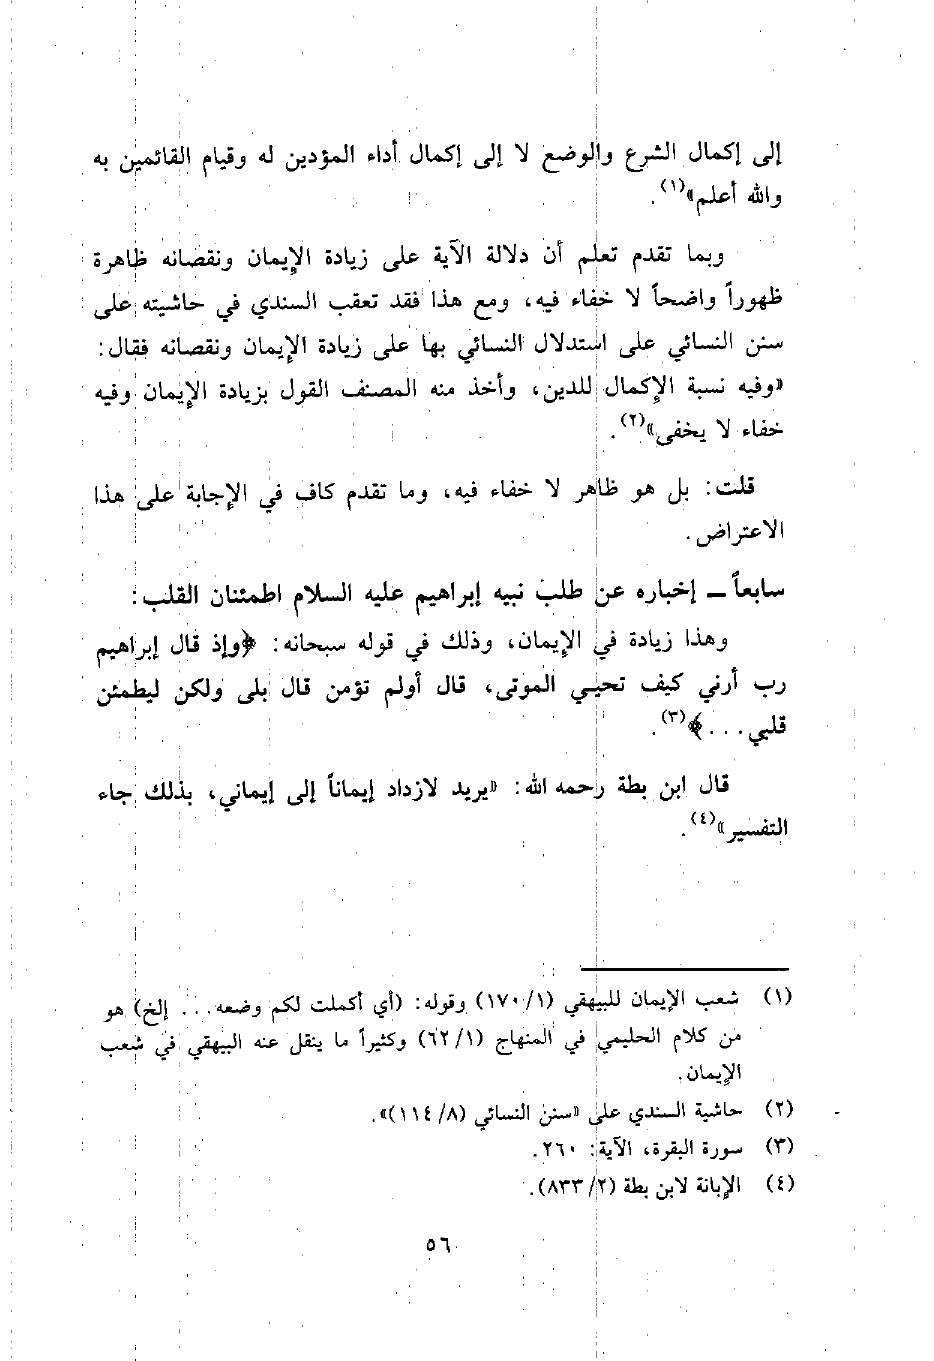 إلى إكمال الشرع والوضع لا إلى إكمال أداء المؤدين له وقيام القائمين به
والله أعلم»(١).
وبما تقدم تعلم أن دلالة الآية على زيادة الإيمان ونقصانه ظاهرة
ظهوراً واضحاً لا خفاء فيه، ومع هذا فقد تعقب السندي في حاشيته على
سنن النسائي على استدلال النسائي بها على زيادة الإيمان ونقصانه فقال:
«وفيه نسبة الإكمال للدين، وأخذ منه المصنف القول بزيادة الإيمان وفيه
خفاء لا يخفى»(٢).
قلت: بل هو ظاهر لا خفاء فيه، وما تقدم كاف في الإجابة على هذا
الاعتراض.
سابعاً ــ إخباره عن طلب نبيه إبراهيم عليه السلام اطمئنان القلب:
وهذا زيادة في الإيمان، وذلك في قوله سبحانه: ﴿وإذ قال إبراهيم
رب أرني كيف تحيـي الموتى، قال أولم تؤمن قال بلى ولكن ليطمئن
قلبي...﴾(٣).
قال ابن بطة رحمه الله: «يريد لازداد إيماناً إلى إيماني، بذلك جاء
التفسير»(٤).
(١) شعب الإيمان للبيهقي (١/ ١٧٠) وقوله: (أي أكملت لكم وضعه... إلخ) هو
من كلام الحليمي في المنهاج (١/ ٦٢) وكثيراً ما ينقل عنه البيهقي في شعب
الإيمان.
(٢) حاشية السندي على «سنن النسائي (٨/ ١١٤)».
(٣) سورة البقرة، الآية: ٢٦٠.
(٤) الإبانة لابن بطة (٢/ ٨٣٣).
٥٦